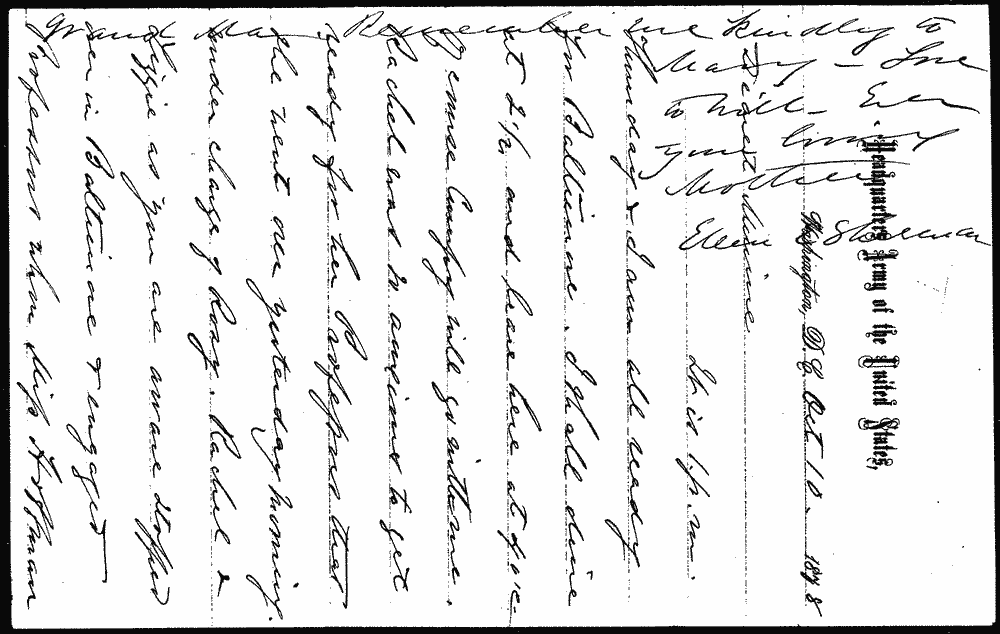 Headquarters Army of the United States,
Washington, D.C. Oct 10 1878
Dearest Minnie
It is 1 p.m.
Thursday & I am all ready
for Baltimore. I shall dine
at 2½ and leave here at four.
Cumpy will go with me.
Rachel was so anxious to get
ready for her Professors that
she went on yesterday morning.
under charge of Rosy. Rachel &
Lizzie as you are aware stopped
over in Baltimore & engaged
Professors whom Miss Hoffman
Grand Ma Remember me kindly to
Mary — Love
to Will — Ever
your loving
Mother
Ellen Sherman